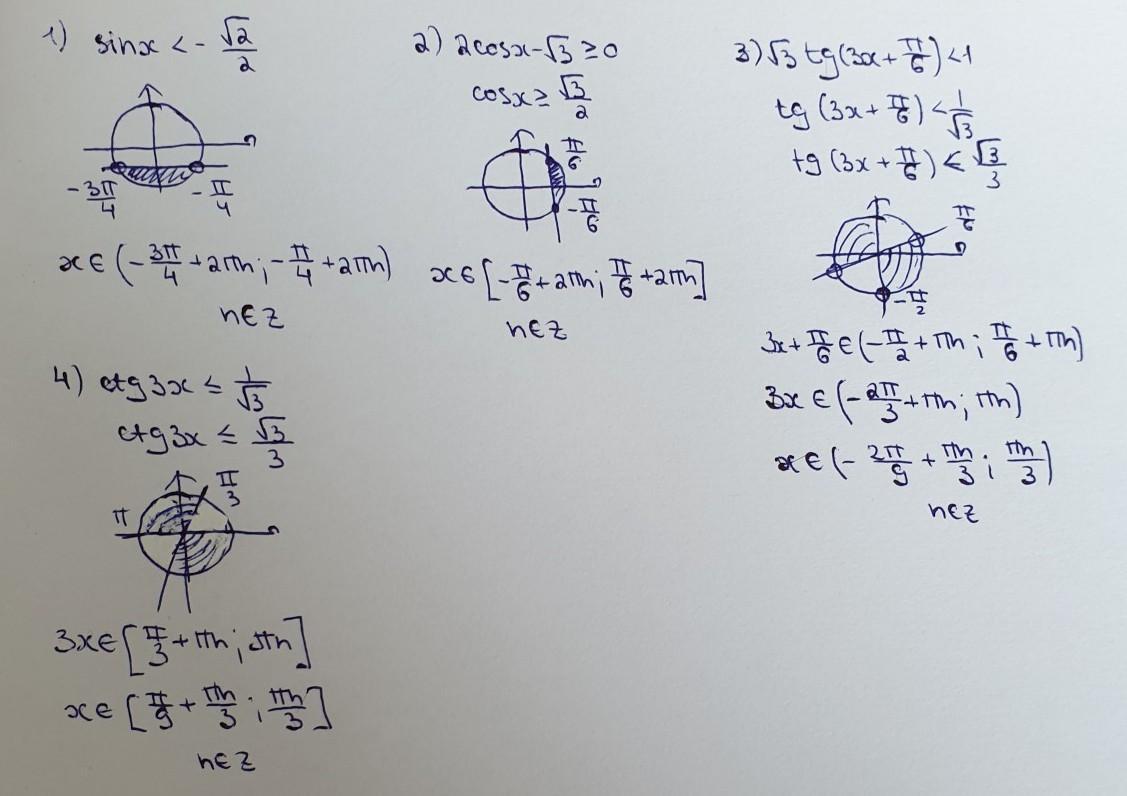 1) sinx < -√2/2
-3π/4 -π/4
x ∈ (-3π/4 + 2πn; -π/4 + 2πn)
n ∈ Z
2) 2cosx - √3 ≥ 0
cosx ≥ √3/2
π/6
-π/6
x ∈ [-π/6 + 2πn; π/6 + 2πn]
n ∈ Z
3) √3 tg(3x + π/6) < 1
tg(3x + π/6) < 1/√3
tg(3x + π/6) < √3/3
π/6
-π/2
3x + π/6 ∈ (-π/2 + πn; π/6 + πn)
3x ∈ (-2π/3 + πn; πn)
x ∈ (-2π/9 + πn/3; πn/3)
n ∈ Z
4) ctg3x ≤ 1/√3
ctg3x ≤ √3/3
π/3
π
3x ∈ [π/3 + πn; πn]
x ∈ [π/9 + πn/3; πn/3]
n ∈ Z